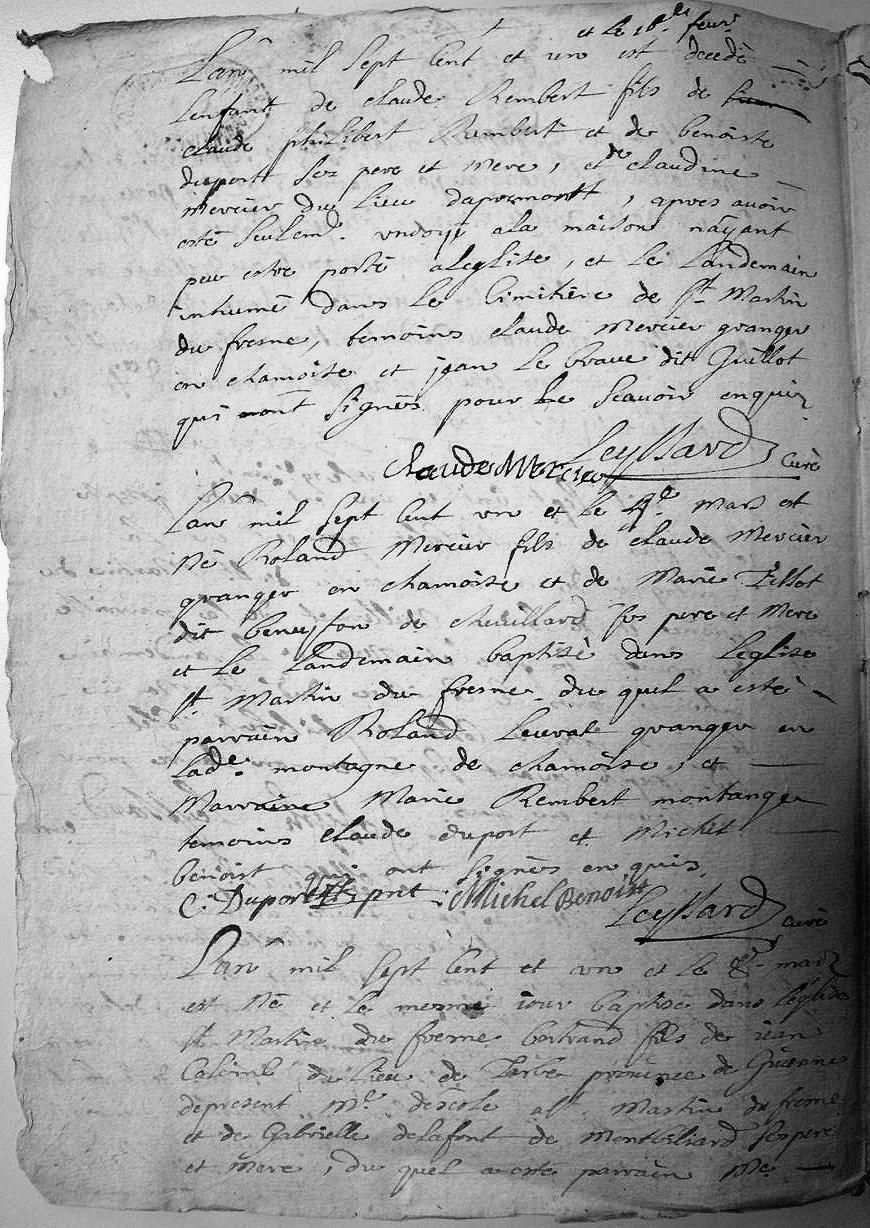 et le 18e feur
Lan mil sept cent et un est decedé
lenfant de claude Rembert fils de
claude philibert Rembert et de benoiste
duport ses pere et mere, et de claudine
mercier du lieu dapremont, apres avoir
esté seulemt. undoyé ala maison nayant
peu estre porté aleglise, et le landemain
inhumé dans le cimitiere de st Martin
du fresne, temoins claude mercier granger
en chamoise et jean le braue dit Guillot
qui nont signés pour le scauoir enquis
claude Mercier Leyssard curé
Lan mil sept cent un et le mars est
né Roland Mercier fils de claude Mercier
granger en chamoise et de Marie Tillot
dit beneyton de cheuillard ses pere et mere
et le landemain baptisé dans leglise
st Martin du fresne. du quel a esté
parrain Roland leurat granger en
lade. montagne de chamoise, et
Marraine Marie Rembert montange
temoins claude duport et Michel
benoist qui ont signés enquis
C. Duport prit : Michel Benoist
Leyssard curé
Lan mil sept cent et un et le 8e mars
est né et le mesme iour baptisé dans leglise
st Martin du fresne bertrand fils de iean
Colomb du lieu de Tarbe prouince de Guienne
depresent Me. descole a st. Martin du fresne
et de Gabrielle delafont de Montbeliard ses pere
et mere, du quel a esté parrain Me.